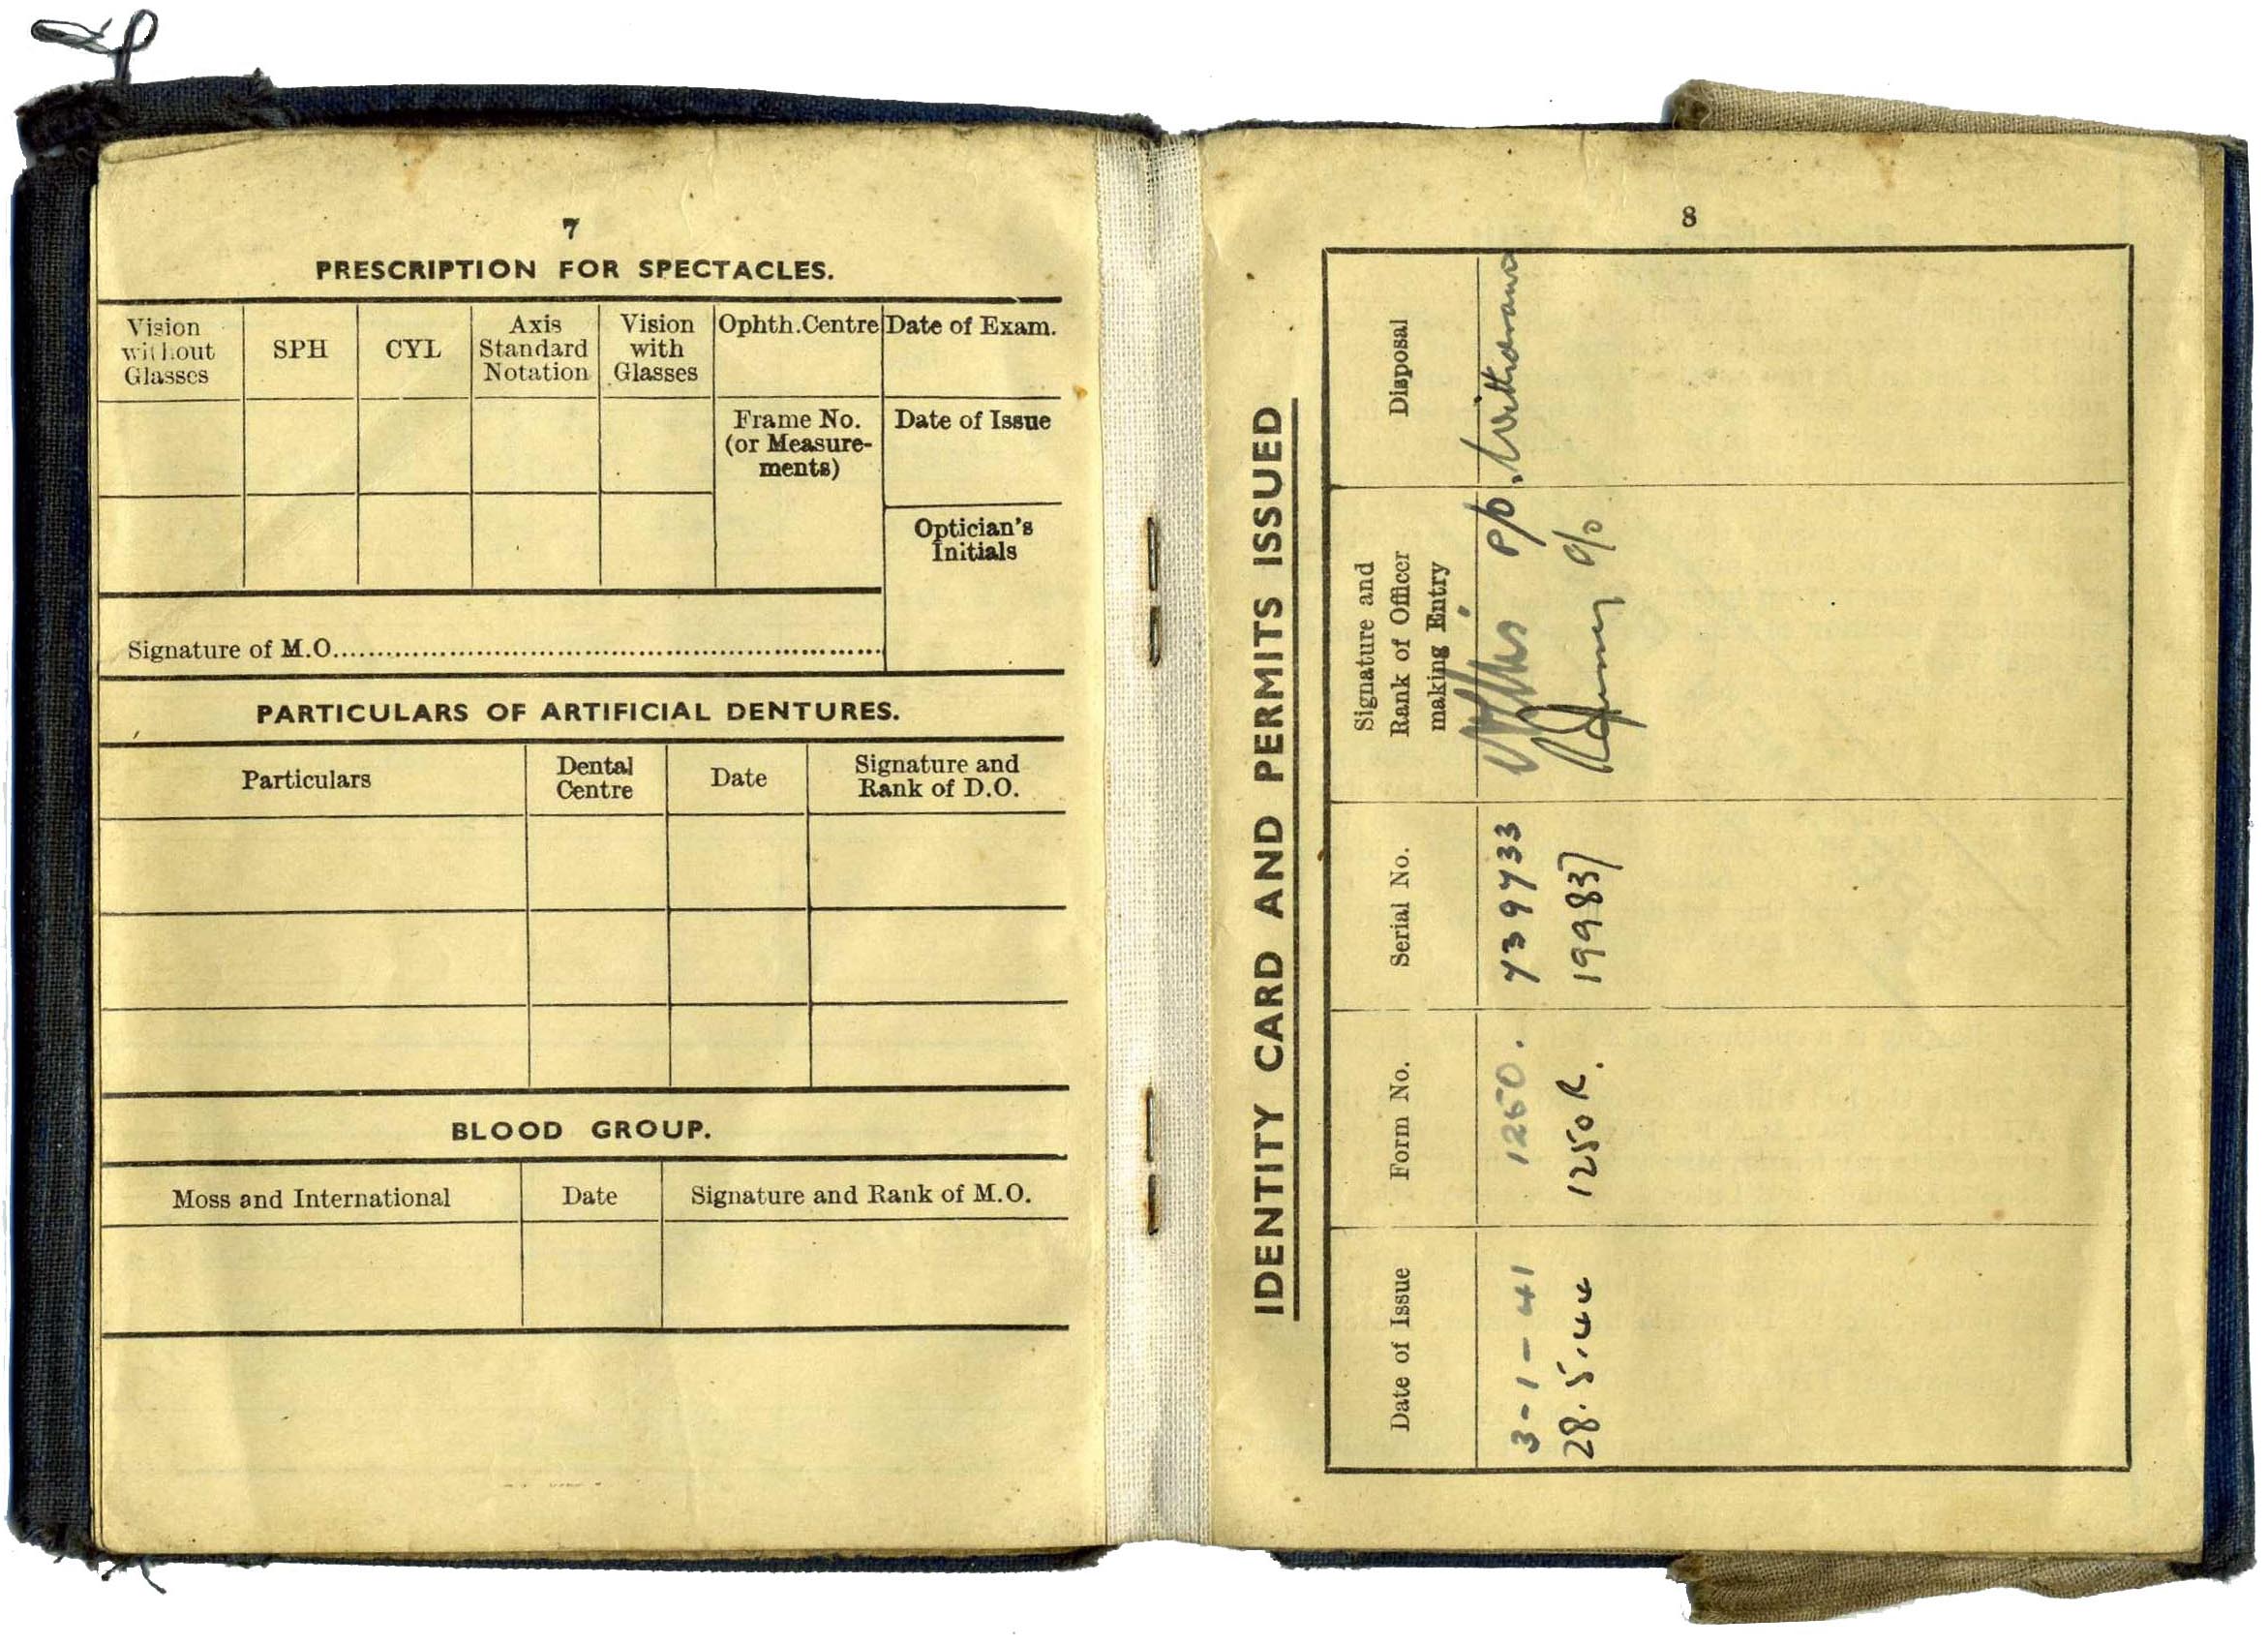 7
PRESCRIPTION FOR SPECTACLES.
Vision without Glasses
SPH
CYL
Axis Standard Notation
Vision with Glasses
Ophth.Centre
Date of Exam.
Frame No. (or Measure-ments)
Date of Issue
Optician's Initials
Signature of M.O.
PARTICULARS OF ARTIFICIAL DENTURES.
Particulars
Dental Centre
Date
Signature and Rank of D.O.
BLOOD GROUP.
Moss and International
Date
Signature and Rank of M.O.
8
IDENTITY CARD AND PERMITS ISSUED
Date of Issue
Form No.
Serial No.
Signature and Rank of Officer making Entry
Disposal
3-1-41 1250. 739733 P/O. Withdrawn
28.5.44 1250 R. 199837